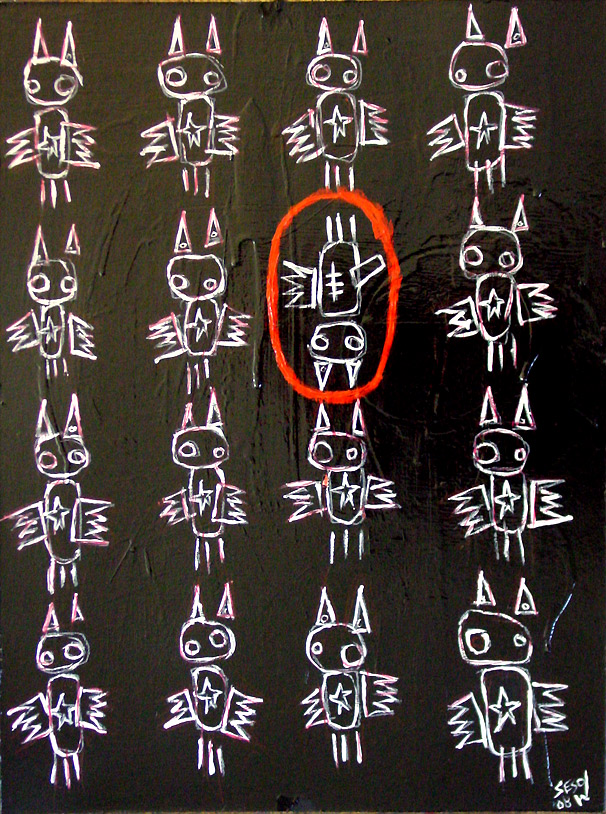 SESOW
'08